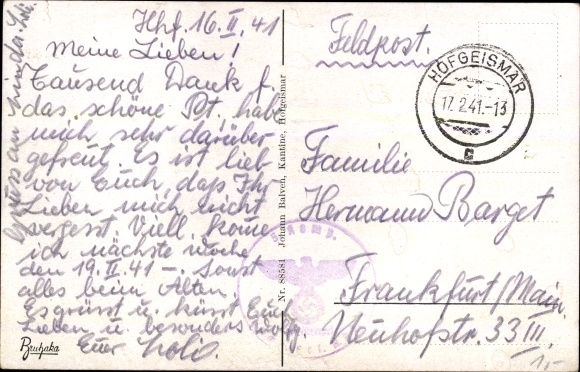 Hhf. 16.II.41
Meine Lieben!
Tausend Dank f.
das schöne Pt. habe
mich sehr darüber
gefreut. Es ist lieb
von Euch, daß Ihr
Lieben mich nicht
vergesst. Viell. kome
ich nächste Woche
den 19.II.41 –. Sonst
alles beim Alten
Es grüsst u. küsst Euch
Lieben u. besonders Wolfg.
Euer
Gruss an
Bruhaka
Nr. 88581 Johann Balveh, Kantine, Hofgeismar
Feldpost.
HOFGEISMAR
17.2.41.-13
c
Familie
Hermann Barget
Frankfurt/Main.
Neuhofstr. 33 III.
1,-